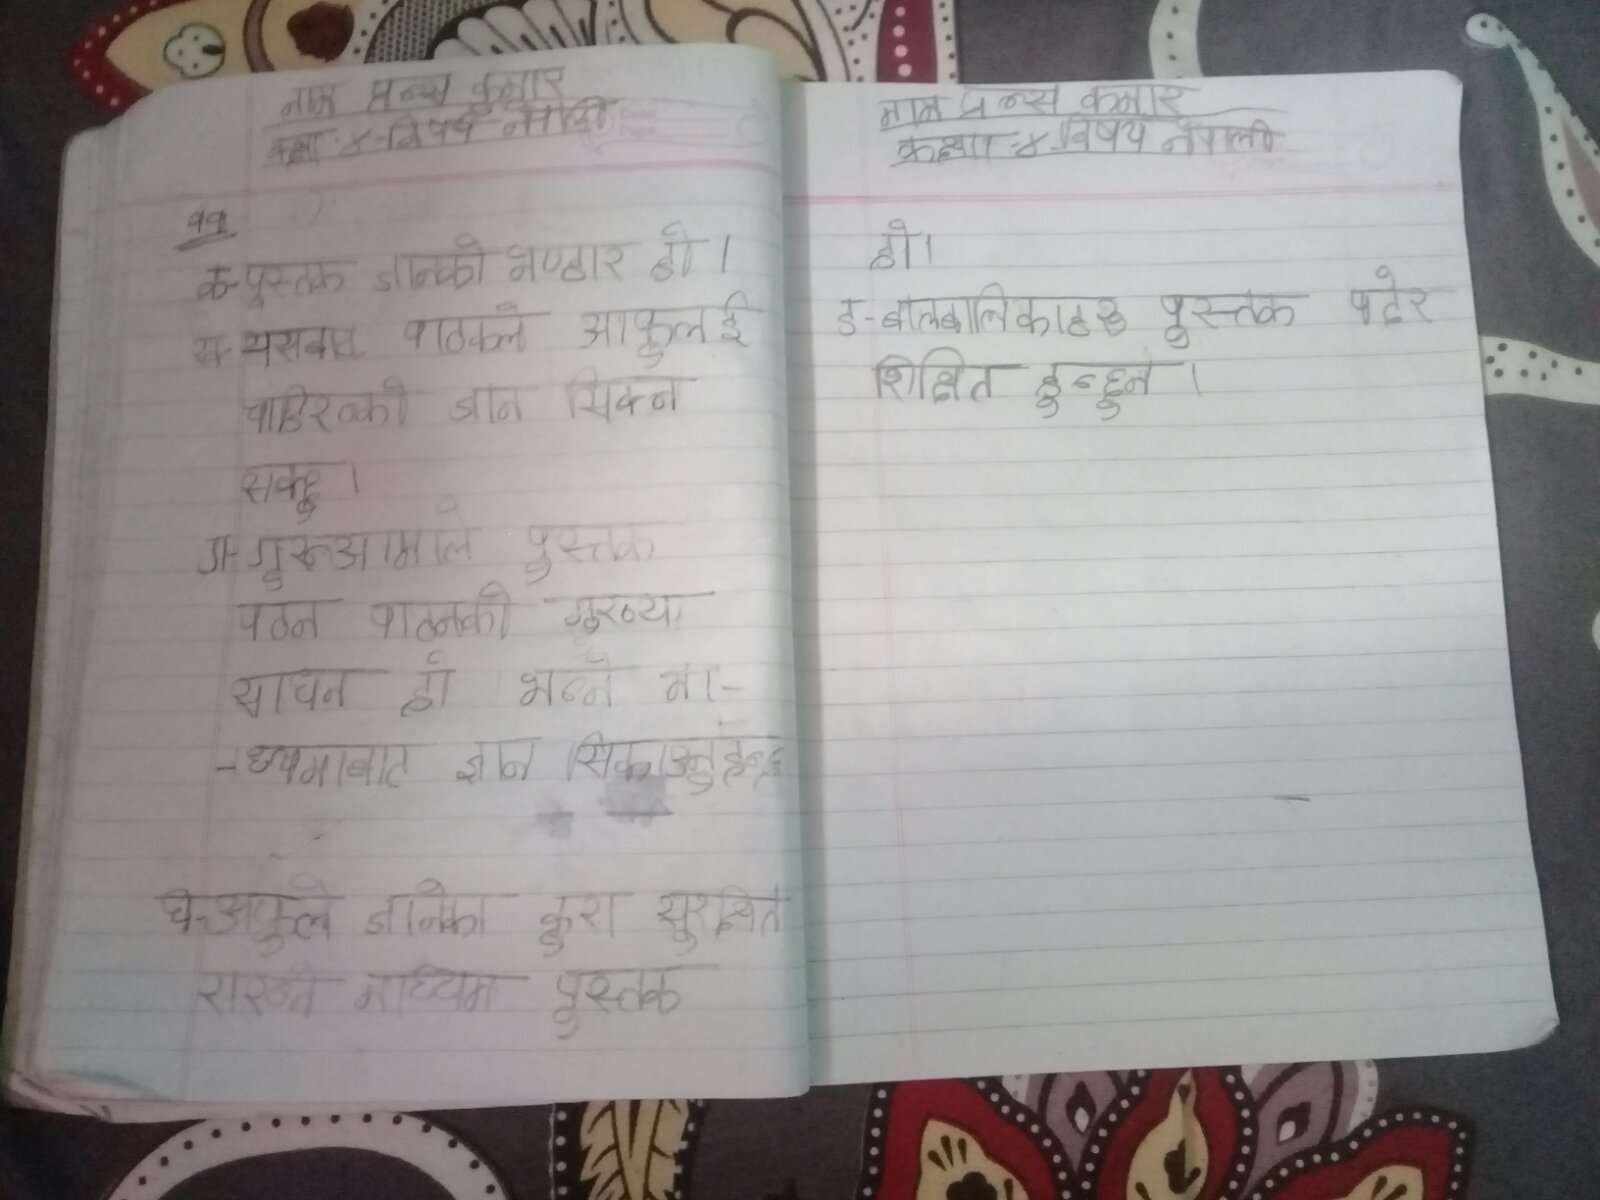 नाम प्रन्स कुमार
कक्षा ४-विषय नेपाली
११
क-पुस्तक ज्ञानको भण्डार हो ।
ख-यसबाट पाठकले आफुलई
बाहिरको ज्ञान सिक्न
सक्छु ।
ग-गुरूआमाले पुस्तक
पठन पाठनको मुख्या
साधन हो भन्ने मा-
-ध्यमाबाट ज्ञान सिकाउनुहुन्छ
घ-अफुले जानेका कुरा सुरक्षित
राख्ने माध्यिम पुस्तक
नाम प्रन्स कुमार
कक्षा :४-विषय नेपाली
हो।
ङ-बालबालिकाहरु पुस्तक पढेर
शिक्षित हुन्छुन ।